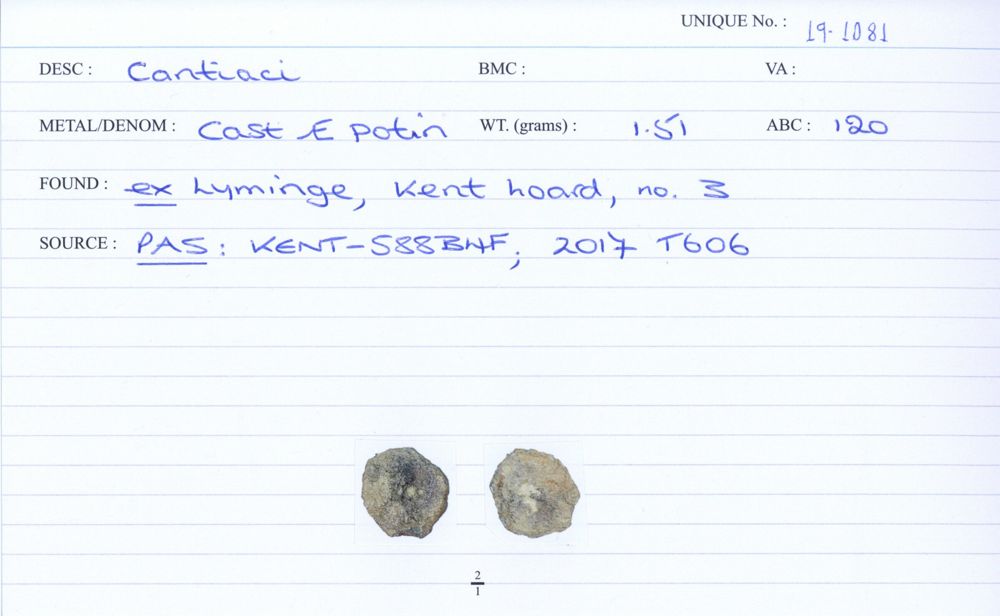 UNIQUE No. : 19-1081
DESC : Cantiaci BMC : VA :
METAL/DENOM : Cast Æ potin WT. (grams) : 1.51 ABC : 120
FOUND : ex Lyminge, Kent hoard, no. 3
SOURCE : PAS: KENT-588B4F; 2017 T606
2
1